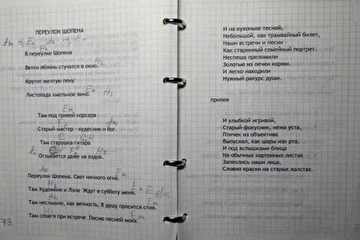 ПЕРЕУЛОК ШОПЕНА
Am H7 Em
В переулке Шопена
Ветки яблонь стучатся в окно.
Крутит желтую пену
Листопада хмельное вино.
Em H7
Em
Там под гривой корсара
Старый мастер - кудесник и бог.
Там старушка-гитара
Отзывается даже на вздох.
Em
Переулок Шопена. Свет ночного огня.
Там Художник и Лала Ждут в субботу меня.
Там неслышно, как вечность, В душу просится стих.
Там слова при встрече Песню песней моих.
73
И на кухоньке тесной,
Небольшой, как трамвайный билет,
Наши встречи и песни -
Как старинный семейный портрет.
Неспеша преломили
Золотые из печки коржи.
И легко находили
Нужный ракурс души.
припев
И улыбкой игривой,
Старый фокусник, нежа уста,
Птичек из объектива
Выпускал, как шары изо рта.
И под вспышками блица
На обычных картонных листах
Запеклись наши лица,
Словно краски на старых холстах.